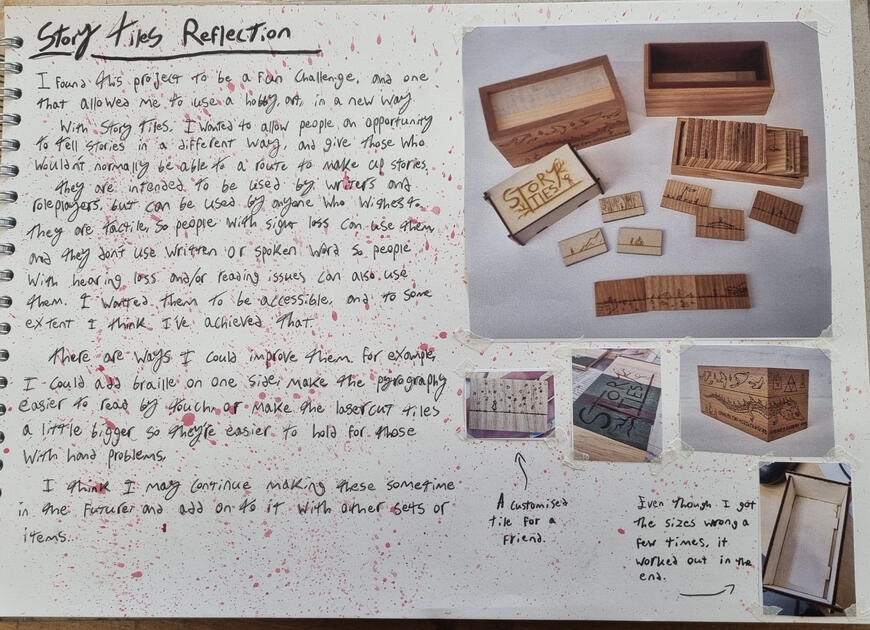 Story Tiles Reflection
I found this project to be a fun challenge, and one
that allowed me to use a hobby art, in a new way
With Story Tiles, I wanted to allow people an opportunity
to tell stories in a different way, and give those who
wouldn't normally be able to a route to make up stories.
They are intended to be used by writers and
roleplayers, but can be used by anyone who wishes to.
They are tactile, so people with sight loss can use them
and they don't use written or spoken word so people
with hearing loss and/or reading issues can also use
them. I wanted them to be accessible, and to some
extent I think I've achieved that.
There are ways I could improve them, for example,
I could add braille on one side, make the pyrography
easier to read by touch, or make the lasercut tiles
a little bigger so they're easier to hold for those
with hand problems.
I think I may continue making these sometime
in the future, and add on to it with other sets or
items.
STORY
TILES
STORY
TILES
A customised
tile for a
friend.
Even though I got
the sizes wrong a
few times, it
worked out in the
end.